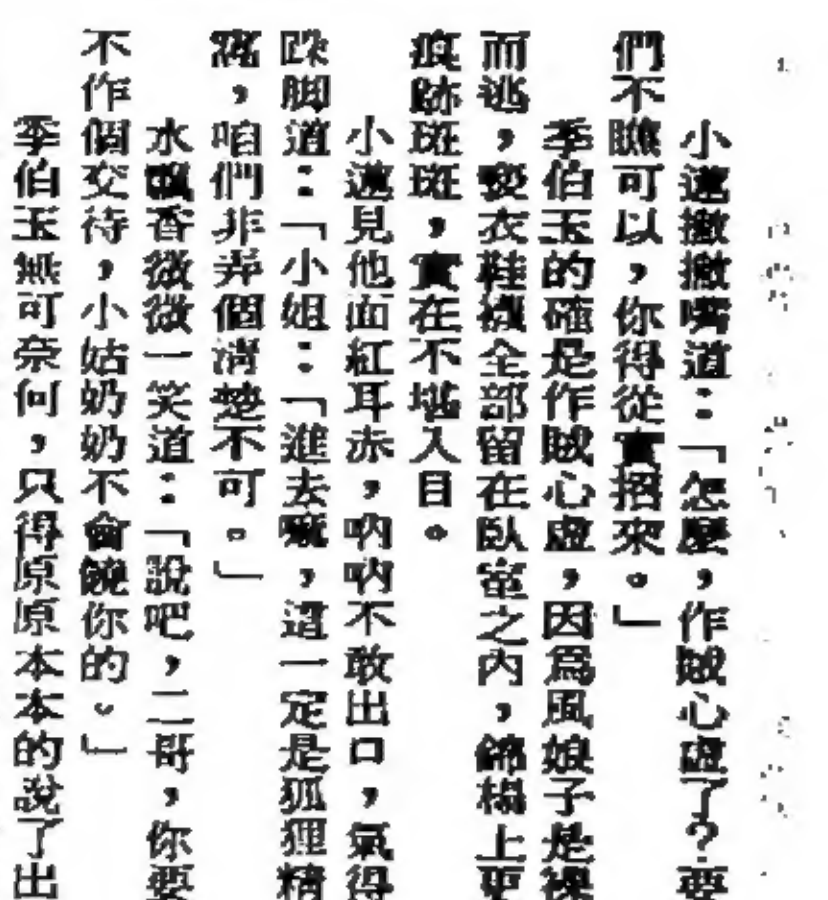 小蓮撇撇嘴道：「怎麼，作賊心虛了？要
們不瞧可以，你得從實招來。」
季伯玉的確是作賊心虛，因爲風娘子是裸
而逃，褻衣鞋襪全部留在臥室之內，錦榻上更
痕跡斑斑，實在不堪入目。
小蓮見他面紅耳赤，吶吶不敢出口，氣得
跺脚道：「小姐：「進去嘛，這一定是狐狸精
窩，咱們非弄個清楚不可。」
水飄香微微一笑道：「說吧，二哥，你要
不作個交待，小姑奶奶不會饒你的。」
季伯玉無可奈何，只得原原本本的說了出